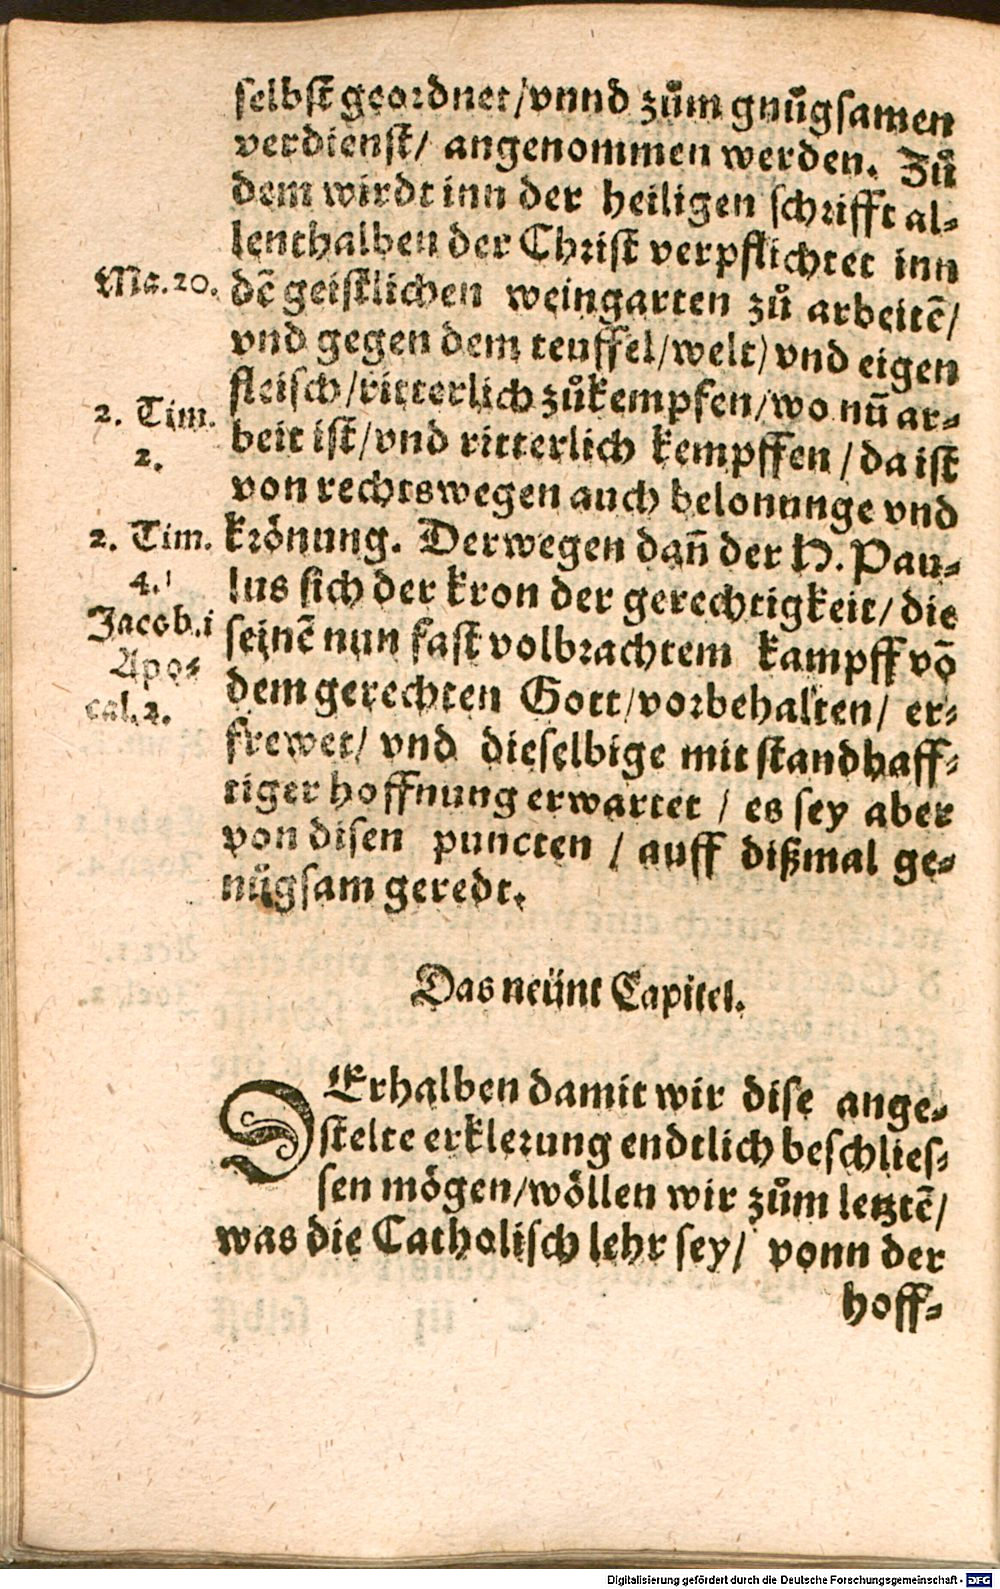 selbst geordnet/vnnd zům gnůgsamen
verdienst/ angenommen werden. Zů
dem wirdt inn der heiligen schrifft al-
lenthalben der Christ verpflichtet inn
Ma.20.
dē geistlichen weingarten zů arbeitē/
vnd gegen dem teuffel/welt/vnd eigen
fleisch/ritterlich zůkempfen/wo nū ar-
2. Tim.
2.
beit ist/vnd ritterlich kempffen/da ist
von rechtswegen auch belonunge vnd
2. Tim.
4.
krönung. Derwegen dañ der H. Pau-
lus sich der kron der gerechtigkeit/die
Jacob.i
seinē nun fast volbrachtem kampff vō
Apo-
cal.2.
dem gerechten Gott/vorbehalten/ er-
frewet/ vnd dieselbige mit standhaff-
tiger hoffnung erwartet / es sey aber
von disen puncten / auff dißmal ge-
nůgsam geredt.
Das neünt Capitel.
DErhalben damit wir dise ange-
stelte erklerung endtlich beschlies-
sen mögen/wöllen wir zům letztē/
was die Catholisch lehr sey/ vonn der
hoff-
Digitalisierung gefördert durch die Deutsche Forschungsgemeinschaft - DFG